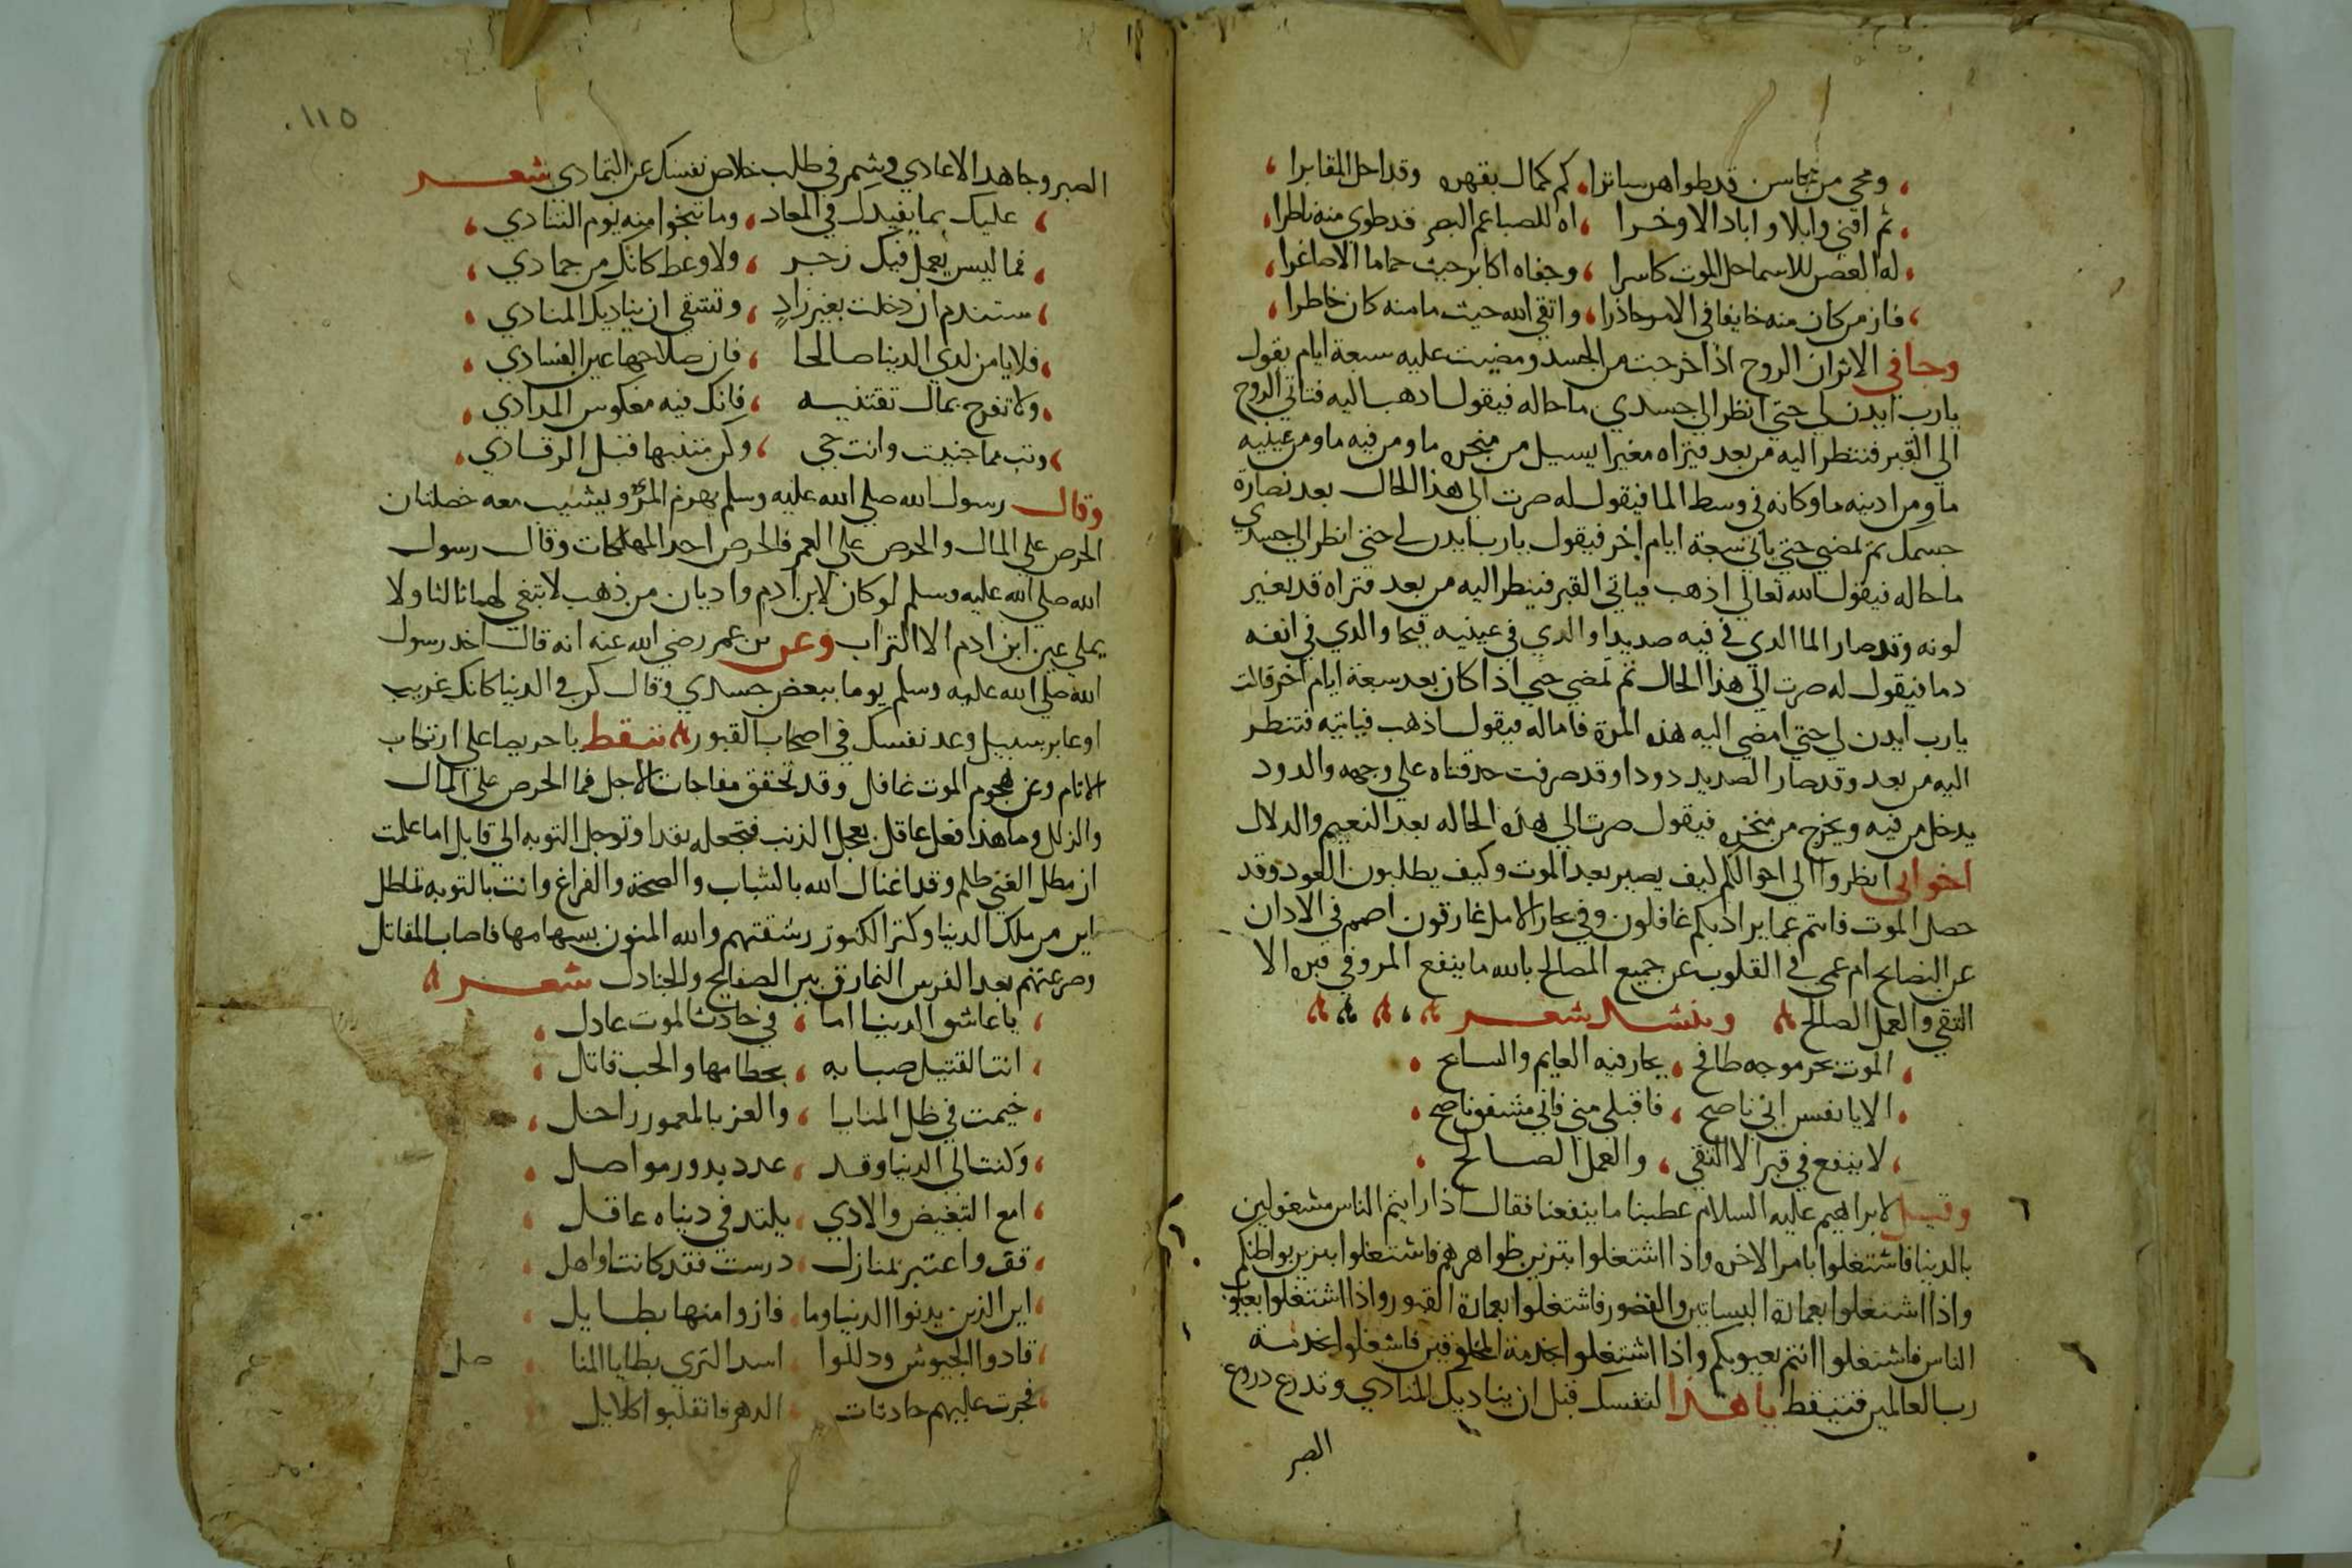 ومحي من محاسن قد طوا هر ساترا كم كمال بقهره وقد احل المقابرا
ثم افني وابلا واباد الاوخرا اه للصبا عم البصر قد طوي منه ناظرا
له الغصن للاسما حل الموت كاسرا وجفاه اكابر حيث حاما الاصاغرا
فاز من كان منه خايفا في الامر حاذرا واتقي الله حيث ما منه كان خاطرا
وجا في الاثر ان الروح اذا خرجت من الجسد ومضيت عليه سبعة ايام يقول
يارب ايدن لي حتي انظر الي جسدي ما حاله فيقول اذهب اليه فتاتي الروح
الي القبر فتنظر اليه من بعد فيتراه مغيرا يسيل من منخره ما ومن فيه ما ومن عينيه
ما ومن ادنيه ما وكانه في وسط الما فيقول له صرت الي هذا الحال بعد نضارة
جسمك ثم تمضي حتي ياتي سبعة ايام اخر فيقول يارب ايدن لي حتي انظر الي جسدي
ما حاله فيقول الله تعالي اذهب فياتي القبر فينظر اليه من بعد فتراه قد تغير
لونه وقد صار الما الدي في فيه صديدا والدي في عينيه قيحا والدي في انفه
دما فيقول له صرت الي هذا الحال ثم تمضي حتي اذا كان بعد سبعة ايام اخر قالت
يارب ايدن لي حتي امضي اليه هذه المرة فاما له فيقول اذهب فياتيه فتنظر
اليه من بعد وقد صار الصديد دودا وقد صرفت حدقتاه علي وجهه والدود
يدخل من فيه ويخرج من منخره فيقول صرت الي هذه الحاله بعد النعيم والدلال
اخواني انظروا الي احوالكم كيف يصير بعد الموت وكيف يطلبون العود وقد
حصل الموت فانتم عما يراد بكم غافلون وفي بحار الامل غارقون اصمم في الادان
عن النصايح ام عمي في القلوب عن جميع المصالح بالله ما ينفع المرو في قبره الا
التقي والعمل الصالح وينشد شعر
الموت بحر موجه طافح يحار فيه العايم والسابح
الا يا نفس اني ناصح فاقبلي مني فاني مشفق ناصح
لا ينفع في قبر الا التقي والعمل الصالح
وقيل لابراهيم عليه السلام عظنا بما ينفعنا فقال اذا رايتم الناس مشغولين
بالدنيا فاشتغلوا بامر الاخره واذا اشتغلوا بتزين ظواهرهم فاشتغلوا بتزين بواطنكم
واذا اشتغلوا بعمارة البساتين والقصور فاشتغلوا بعمارة القبور واذا اشتغلوا بعيوب
الناس فاشتغلوا انتم بعيوبكم واذا اشتغلوا بخدمة المخلوقين فاشغلوا بخدمة
رب العالمين فتيقظ يا هذا لنفسك قبل ان يناديك المنادي وتدرع دروع
الصبر
١١٥
الصبر وجاهد الاعادي وشمر في طلب خلاص نفسك عن التمادي شعر
عليك بما يفيدك في المعاد وما تنجوا منه يوم التنادي
فما ليس يعمل فيك زجر ولا وعظ كانك من جمادي
ستندم ان دخلت بغير زاد وتشقي ان يناديك المنادي
فلا يا من لدي الدينا صالحا فان صلاحها عين الفسادي
ولا تفرح بمال تقتنيه فانك فيه معكوس المرادي
وتب مما جنيت وانت حي وكن متنبها قبل الرقادي
وقال رسول الله صلي الله عليه وسلم يهرم المرؤ ويشيب معه خصلتان
الحرص علي المال والحرص علي العمر فالحرص احد المهلكات وقال رسول
الله صلي الله عليه وسلم لو كان لابن ادم واديان من ذهب لابتغي لهما ثالثا ولا
يملي عين ابن ادم الا التراب وعن بن عمر رضي الله عنه انه قال اخد رسول
الله صلي الله عليه وسلم يوما ببعض جسدي وقال كن في الدينا كانك غريب
او عابر سبيل وعد نفسك في اصحاب القبور تيقظ يا حريصا علي ارتكاب
الاثام وعن هجوم الموت غافل وقد تحقق مفاجات الاجل فما الحرص علي المال
والزلل وما هذا فعل عاقل يعجل الذنب فتجعله نقدا وتوجل التوبه الي قابل اما علمت
ان مطل الغني ظلم وقد اغناك الله بالشباب والصحة والفراغ وانت بالتوبه تماطل
اين من ملك الدنيا وكنز الكنوز رشقتهم والله المنون بسهامها فاصاب المقاتل
وصرعتهم بعد الفرش النمارق بين الصفايح والجنادل شعر
يا عاشق الدينا اما في حادث الموت عادل
انت القتيل صبابه بحطامها والحب قاتل
خيمت في ظل المنايا والعز بالمعمور راحل
وكنت الي الدنيا وقد عدد بدور مواصل
امع التبغيض والادي يلتد في دنياه عاقل
قف واعتبر بمنازل درست فقد كانت اواهل
اين الذين بدنوا الدنيا وما فازوا منها بطايل
قادوا الجيوش ودللوا اسد الثري بطايا المنا صل
فجرت عليهم حادثات الدهر فانقلبوا كلايل